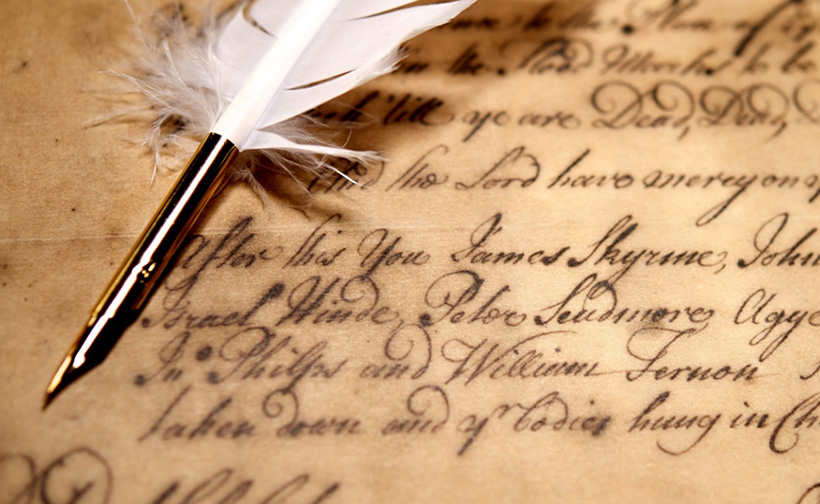 to the Place of
the Flood Marks to be
till ye are Dead, Dead,
And the Lord have mercy on y
After this You James Skyrme, John
Israel Hinde, Peter Scudmore Agge
Jnº Philps and William Fernon
taken down and yr bodies hung in Ch